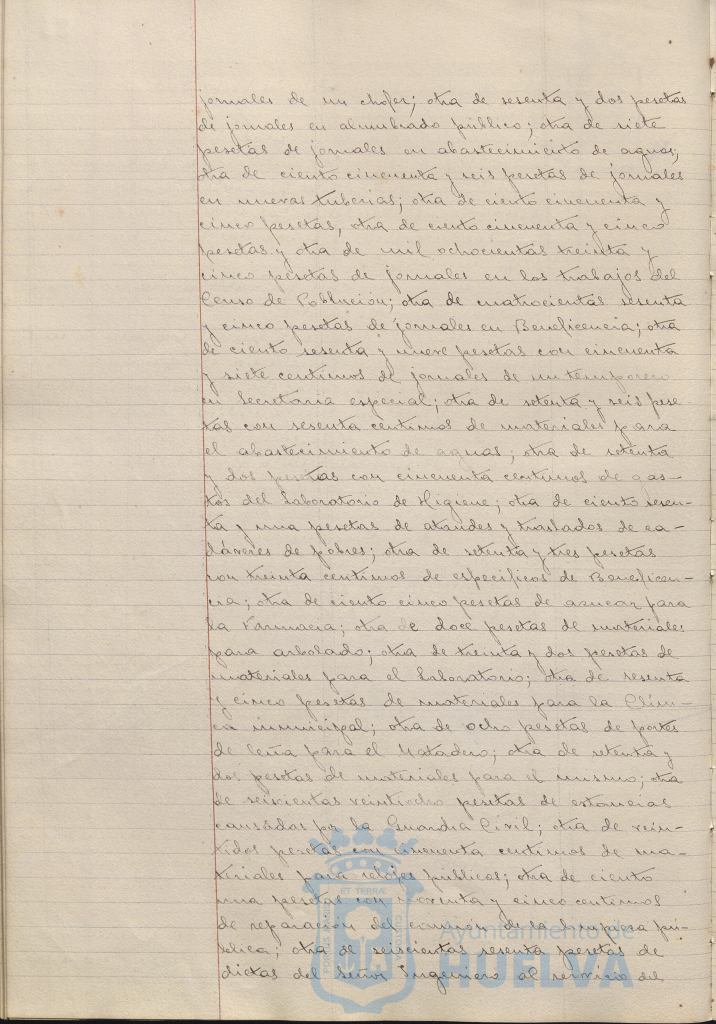 jornales de un chofer; otra de sesenta y dos pesetas
de jornales en alumbrado público; otra de siete
pesetas de jornales en abastecimiento de aguas;
otra de ciento cincuenta y seis pesetas de jornales
en nuevas tuberias; otra de ciento cincuenta y
cinco pesetas, otra de ciento cincuenta y cinco
pesetas y otra de mil ochocientas treinta y
cinco pesetas de jornales en los trabajos del
Censo de Población; otra de cuatrocientas sesenta
y cinco pesetas de jornales en Beneficencia; otra
de ciento sesenta y nueve pesetas con cincuenta
y siete centimos de jornales de un temporero
en Secretaria especial; otra de setenta y seis pese-
tas con sesenta centimos de materiales para
el abastecimiento de aguas; otra de setenta
y dos pesetas con cincuenta centimos de gas-
tos del Laboratorio de Higiene; otra de ciento sesen-
ta y una pesetas de ataudes y traslados de ca-
dáveres de pobres; otra de setenta y tres pesetas
con treinta centimos de especificos de Beneficen-
cia; otra de ciento cinco pesetas de azucar para
la Farmacia; otra de doce pesetas de materiales
para arbolado; otra de treinta y dos pesetas de
materiales para el Laboratorio; otra de sesenta
y cinco pesetas de materiales para la Clíni-
ca municipal; otra de ocho pesetas de portes
de leña para el Matadero; otra de setenta y
dos pesetas de materiales para el mismo; otra
de seiscientas veintiocho pesetas de estancias
causadas por la Guardia Civil; otra de vein-
tidos pesetas con cincuenta centimos de ma-
teriales para relojes públicos; otra de ciento
una pesetas con noventa y cinco centimos
de reparación del camión de la limpieza pú-
blica; otra de seiscientas sesenta pesetas de
dietas del Señor Ingeniero al servicio del
Ayuntamiento de
HUELVA